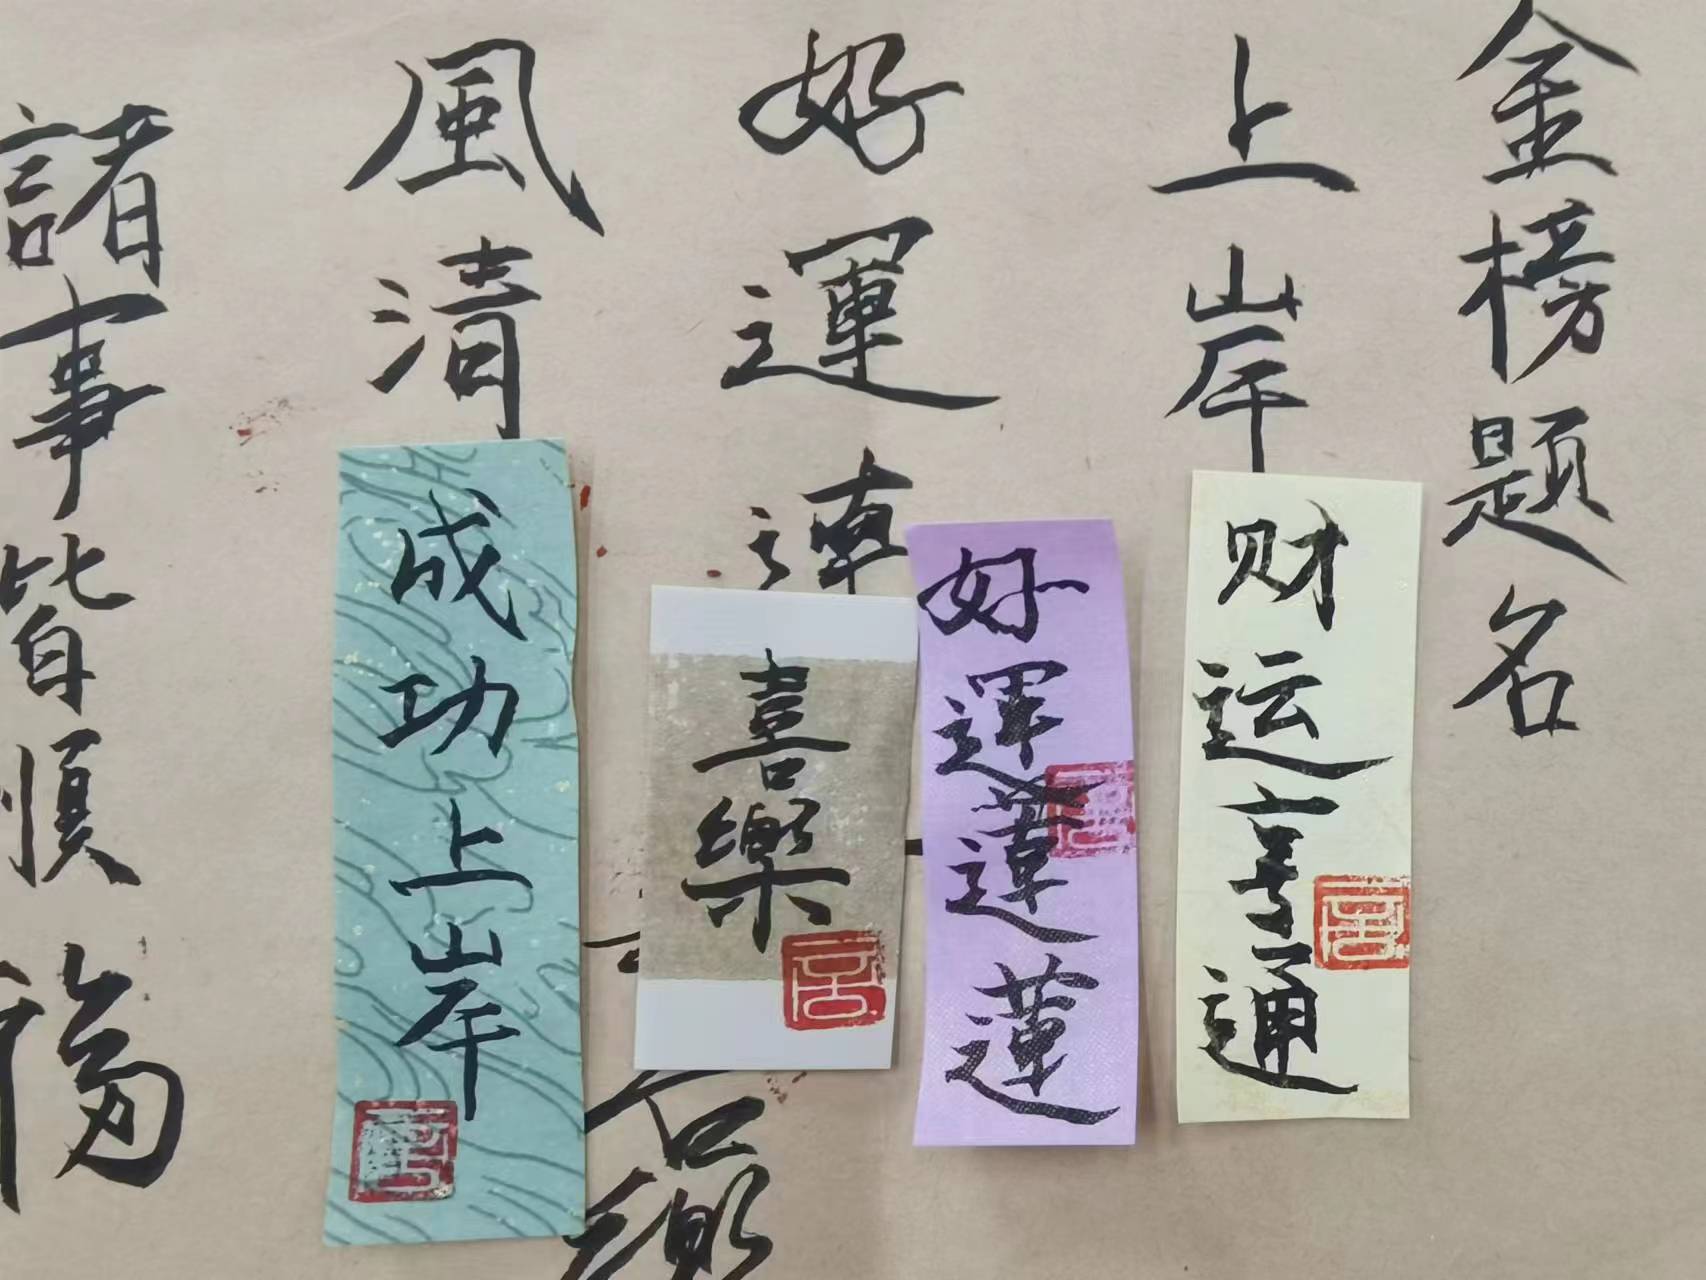 金榜题名
上岸
好運連
風清
諸事皆順
财运亨通
好運蓮蓮
喜樂
成功上岸